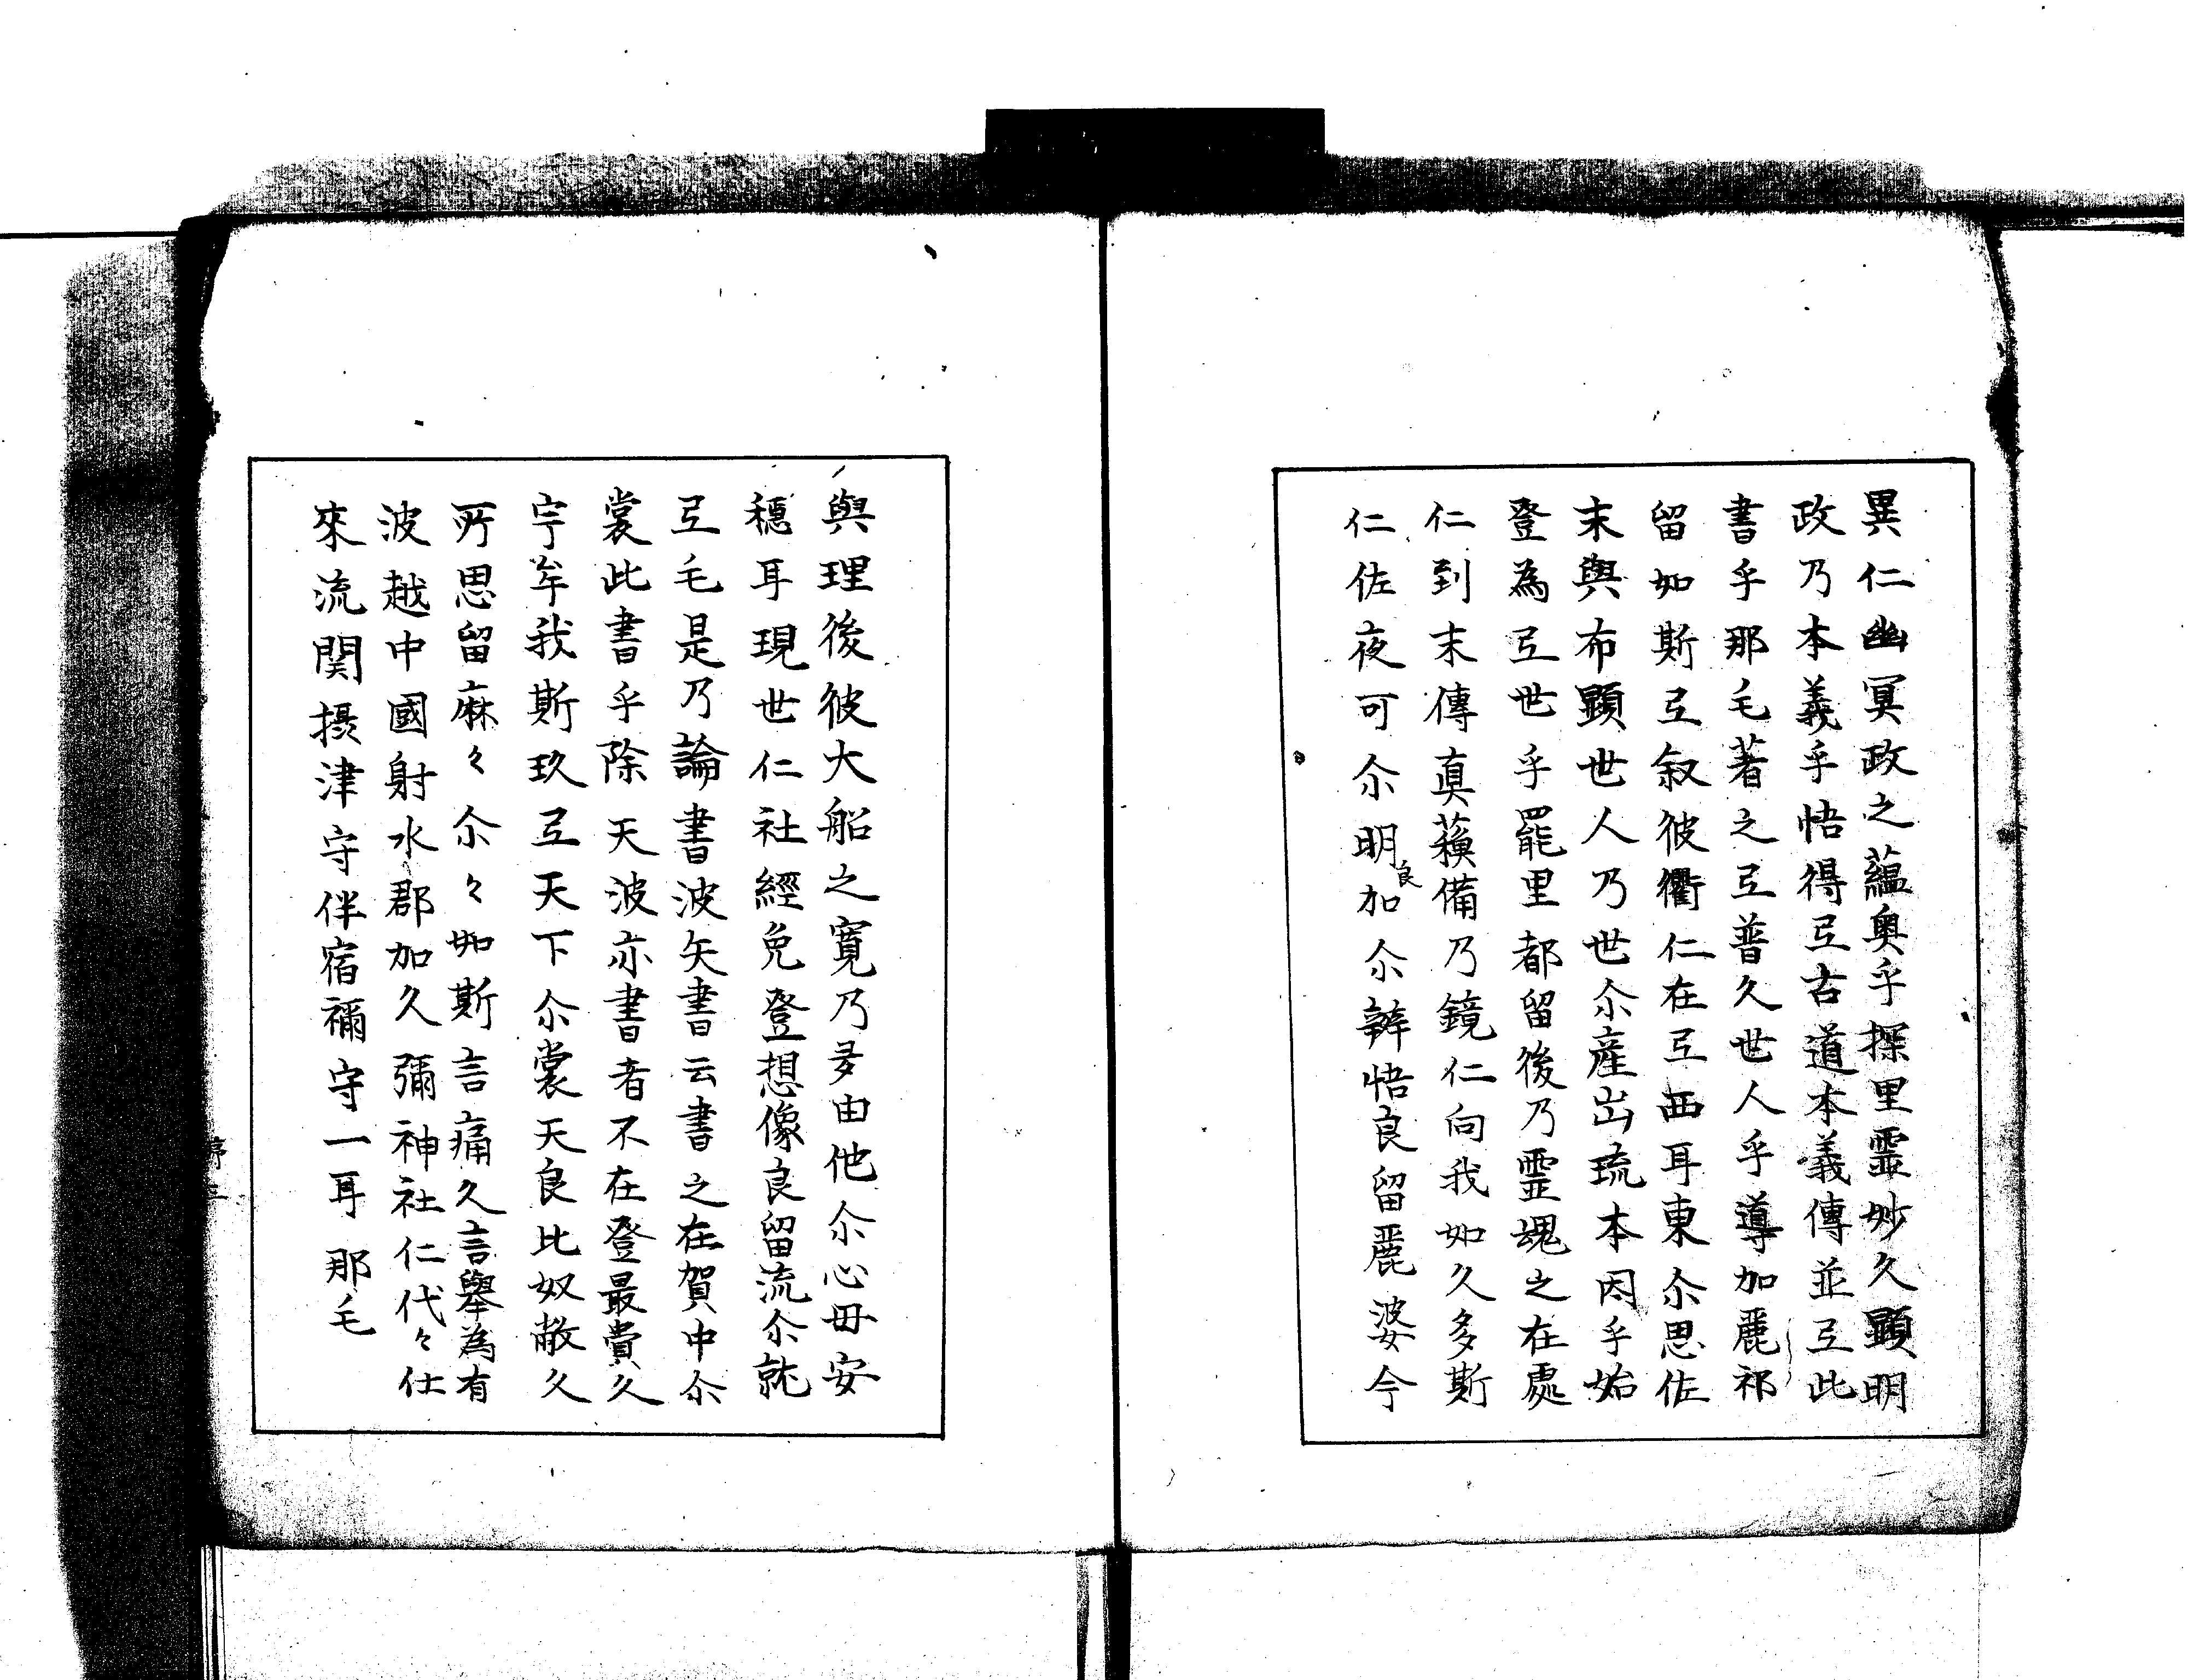 異仁幽冥政之蘊奥乎探里霊妙久顕明
政乃本義乎悟得弖古道本義傳並弖此
書乎那毛著之弖普久世人乎導加麗祁
留如斯弖叙彼衢仁在弖西耳東尒思佐
末與布顕世人乃世尒産出琉本因乎始
登為弖世乎罷里都留後乃靈魂之在處
仁到末傳真蘓備乃鏡仁向我如久多斯
仁佐夜可尒明良加尒辨悟良留麗婆今
與理後彼大船之寛乃由他尒心毋安
穏耳現世仁社經免登想像良留流尒就
弖毛是乃論書波矢書云書之在賀中尒
裳此書乎除天波亦書者不在登最貴久
宇牟我斯玖弖天下尒裳天良比奴敝久
所思留麻々尒々如斯言痛久言舉為有
波越中國射水郡加久彌神社仁代々仕
來流関摂津守伴宿禰守一耳那毛
序